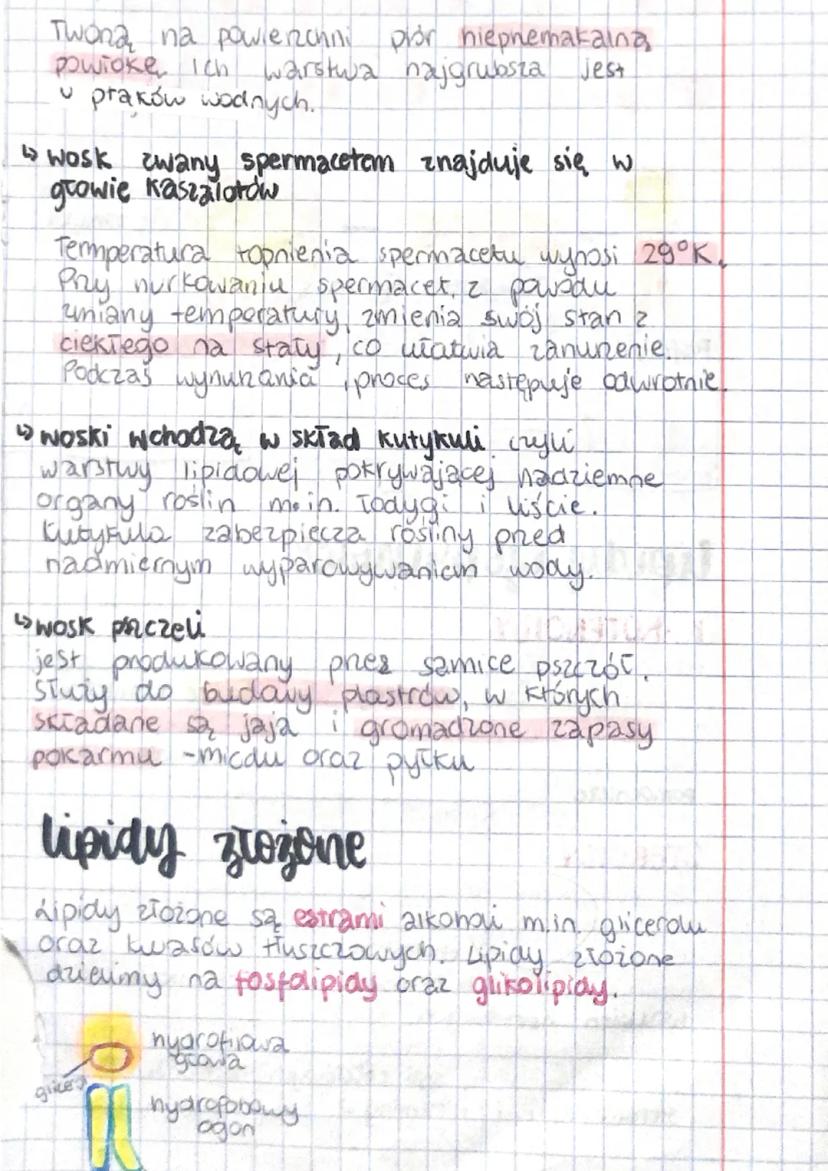 Tworzą na powierzchni piór nieprzemakalną
powłokę. Ich warstwa najgrubsza jest
u ptaków wodnych.
↳ wosk zwany spermacetem znajduje się w
głowie kaszalotów
Temperatura topnienia spermacetu wynosi 29°K.
Przy nurkowaniu spermacet, z powodu
zmiany temperatury, zmienia swój stan z
ciekłego na stały, co ułatwia zanurzenie.
Podczas wynurzania, proces następuje odwrotnie.
↳ woski wchodzą w skład kutykuli czyli
warstwy lipidowej pokrywającej nadziemne
organy roślin m.in. łodygi i liście.
Kutykula zabezpiecza rośliny przed
nadmiernym wyparowywaniem wody.
↳ wosk pszczeli
jest produkowany przez samice pszczół.
Służy do budowy plastrów, w których
składane są jaja i gromadzone zapasy
pokarmu - miodu oraz pyłku
Lipidy złożone
Lipidy złożone są estrami alkoholi m.in. glicerolu
oraz kwasów tłuszczowych. Lipidy złożone
dzielimy na fosfolipidy oraz glikolipidy.
hydrofilowa
głowa
hydrofobowy
ogon